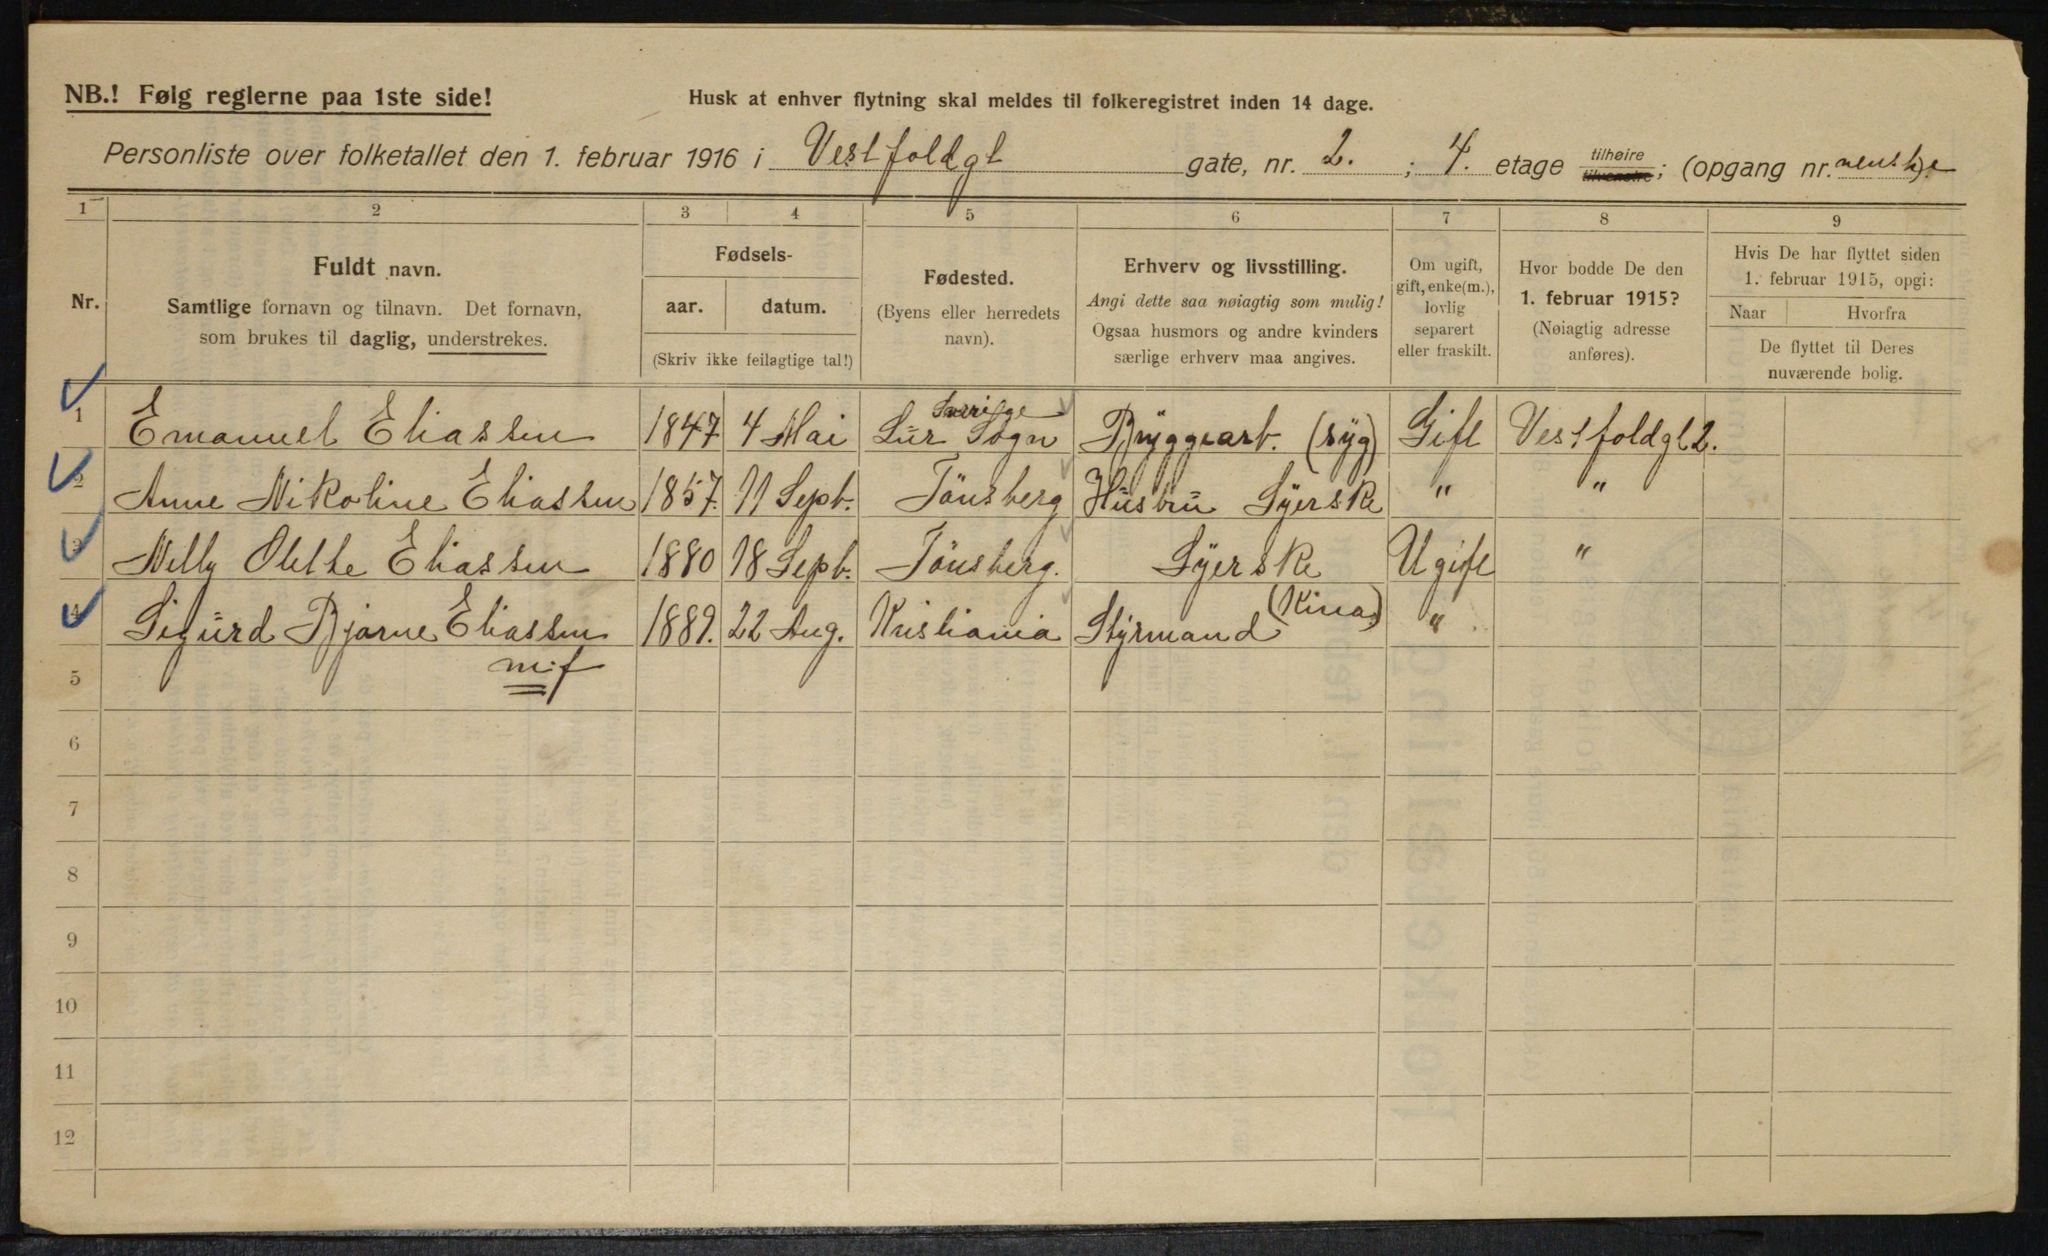 NB.! Følg reglerne paa 1ste side!
Husk at enhver flytning skal meldes til folkeregistret inden 14 dage.
Personliste over folketallet den 1. februar 1916 i Vestfoldgt gate, nr. 2. ; 4. etage tilhøire tilvenstre; (opgang nr.
1 2 3 4 5 6 7 8 9
Nr.
Fuldt navn.
Samtlige fornavn og tilnavn. Det fornavn,
som brukes til daglig, understrekes.
Fødsels-
aar. datum.
(Skriv ikke feilagtige tal!)
Fødested.
(Byens eller herredets
navn).
Erhverv og livsstilling.
Angi dette saa nøiagtig som mulig!
Ogsaa husmors og andre kvinders
særlige erhverv maa angives.
Om ugift,
gift, enke(m.),
lovlig
separert
eller fraskilt.
Hvor bodde De den
1. februar 1915?
(Nøiagtig adresse
anføres).
Hvis De har flyttet siden
1. februar 1915, opgi:
Naar Hvorfra
De flyttet til Deres
nuværende bolig.
Sverige
1 Emanuel Eliassen 1847 4 Mai Lur Sogn Bryggearb. (syg) Gift Vestfoldgt 2.
2 Anne Nikoline Eliassen 1857. 11 Sept. Tönsberg Husbru Syerske " "
3 Nelly Olethe Eliassen 1880 18 Sept. Tönsberg. Syerske Ugift "
4 Sigurd Bjarne Eliassen 1889. 22 Aug. Kristiania Styrmand (Kina) "
m.f
5
6
7
8
9
10
11
12